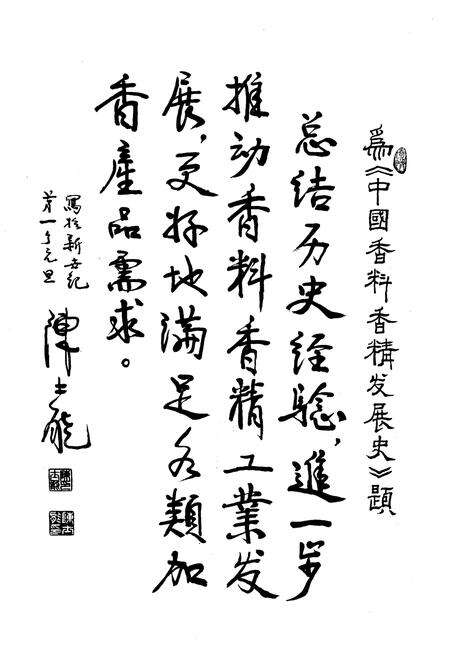 為《中國香料香精发展史》題
总结历史经驗,進一步
推动香料香精工業发
展,更好地满足各類加
香產品需求。
寫於新世纪
第一个元旦
陳士能